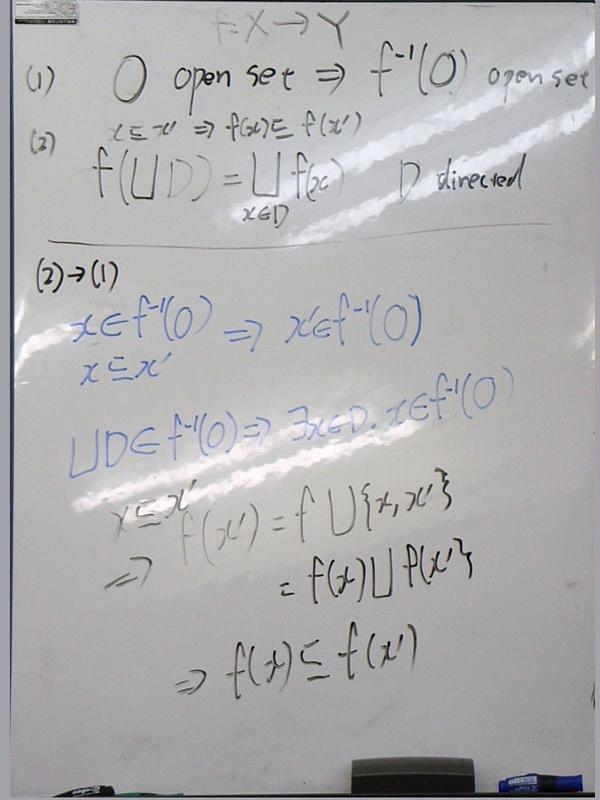 f: X → Y
(1) O open set ⇒ f⁻¹(O) open set
x ⊑ x' ⇒ f(x) ⊑ f(x')
(2) f(⊔D) = ⊔ f(x) D directed
x∈D
(2)→(1)
x ∈ f⁻¹(O) ⇒ x' ∈ f⁻¹(O)
x ⊑ x'
⊔D ∈ f⁻¹(O) ⇒ ∃x∈D. x ∈ f⁻¹(O)
x ⊑ x'
⇒ f(x') = f ⊔{x, x'}
= f(x) ⊔ f(x'}
⇒ f(x) ⊑ f(x')